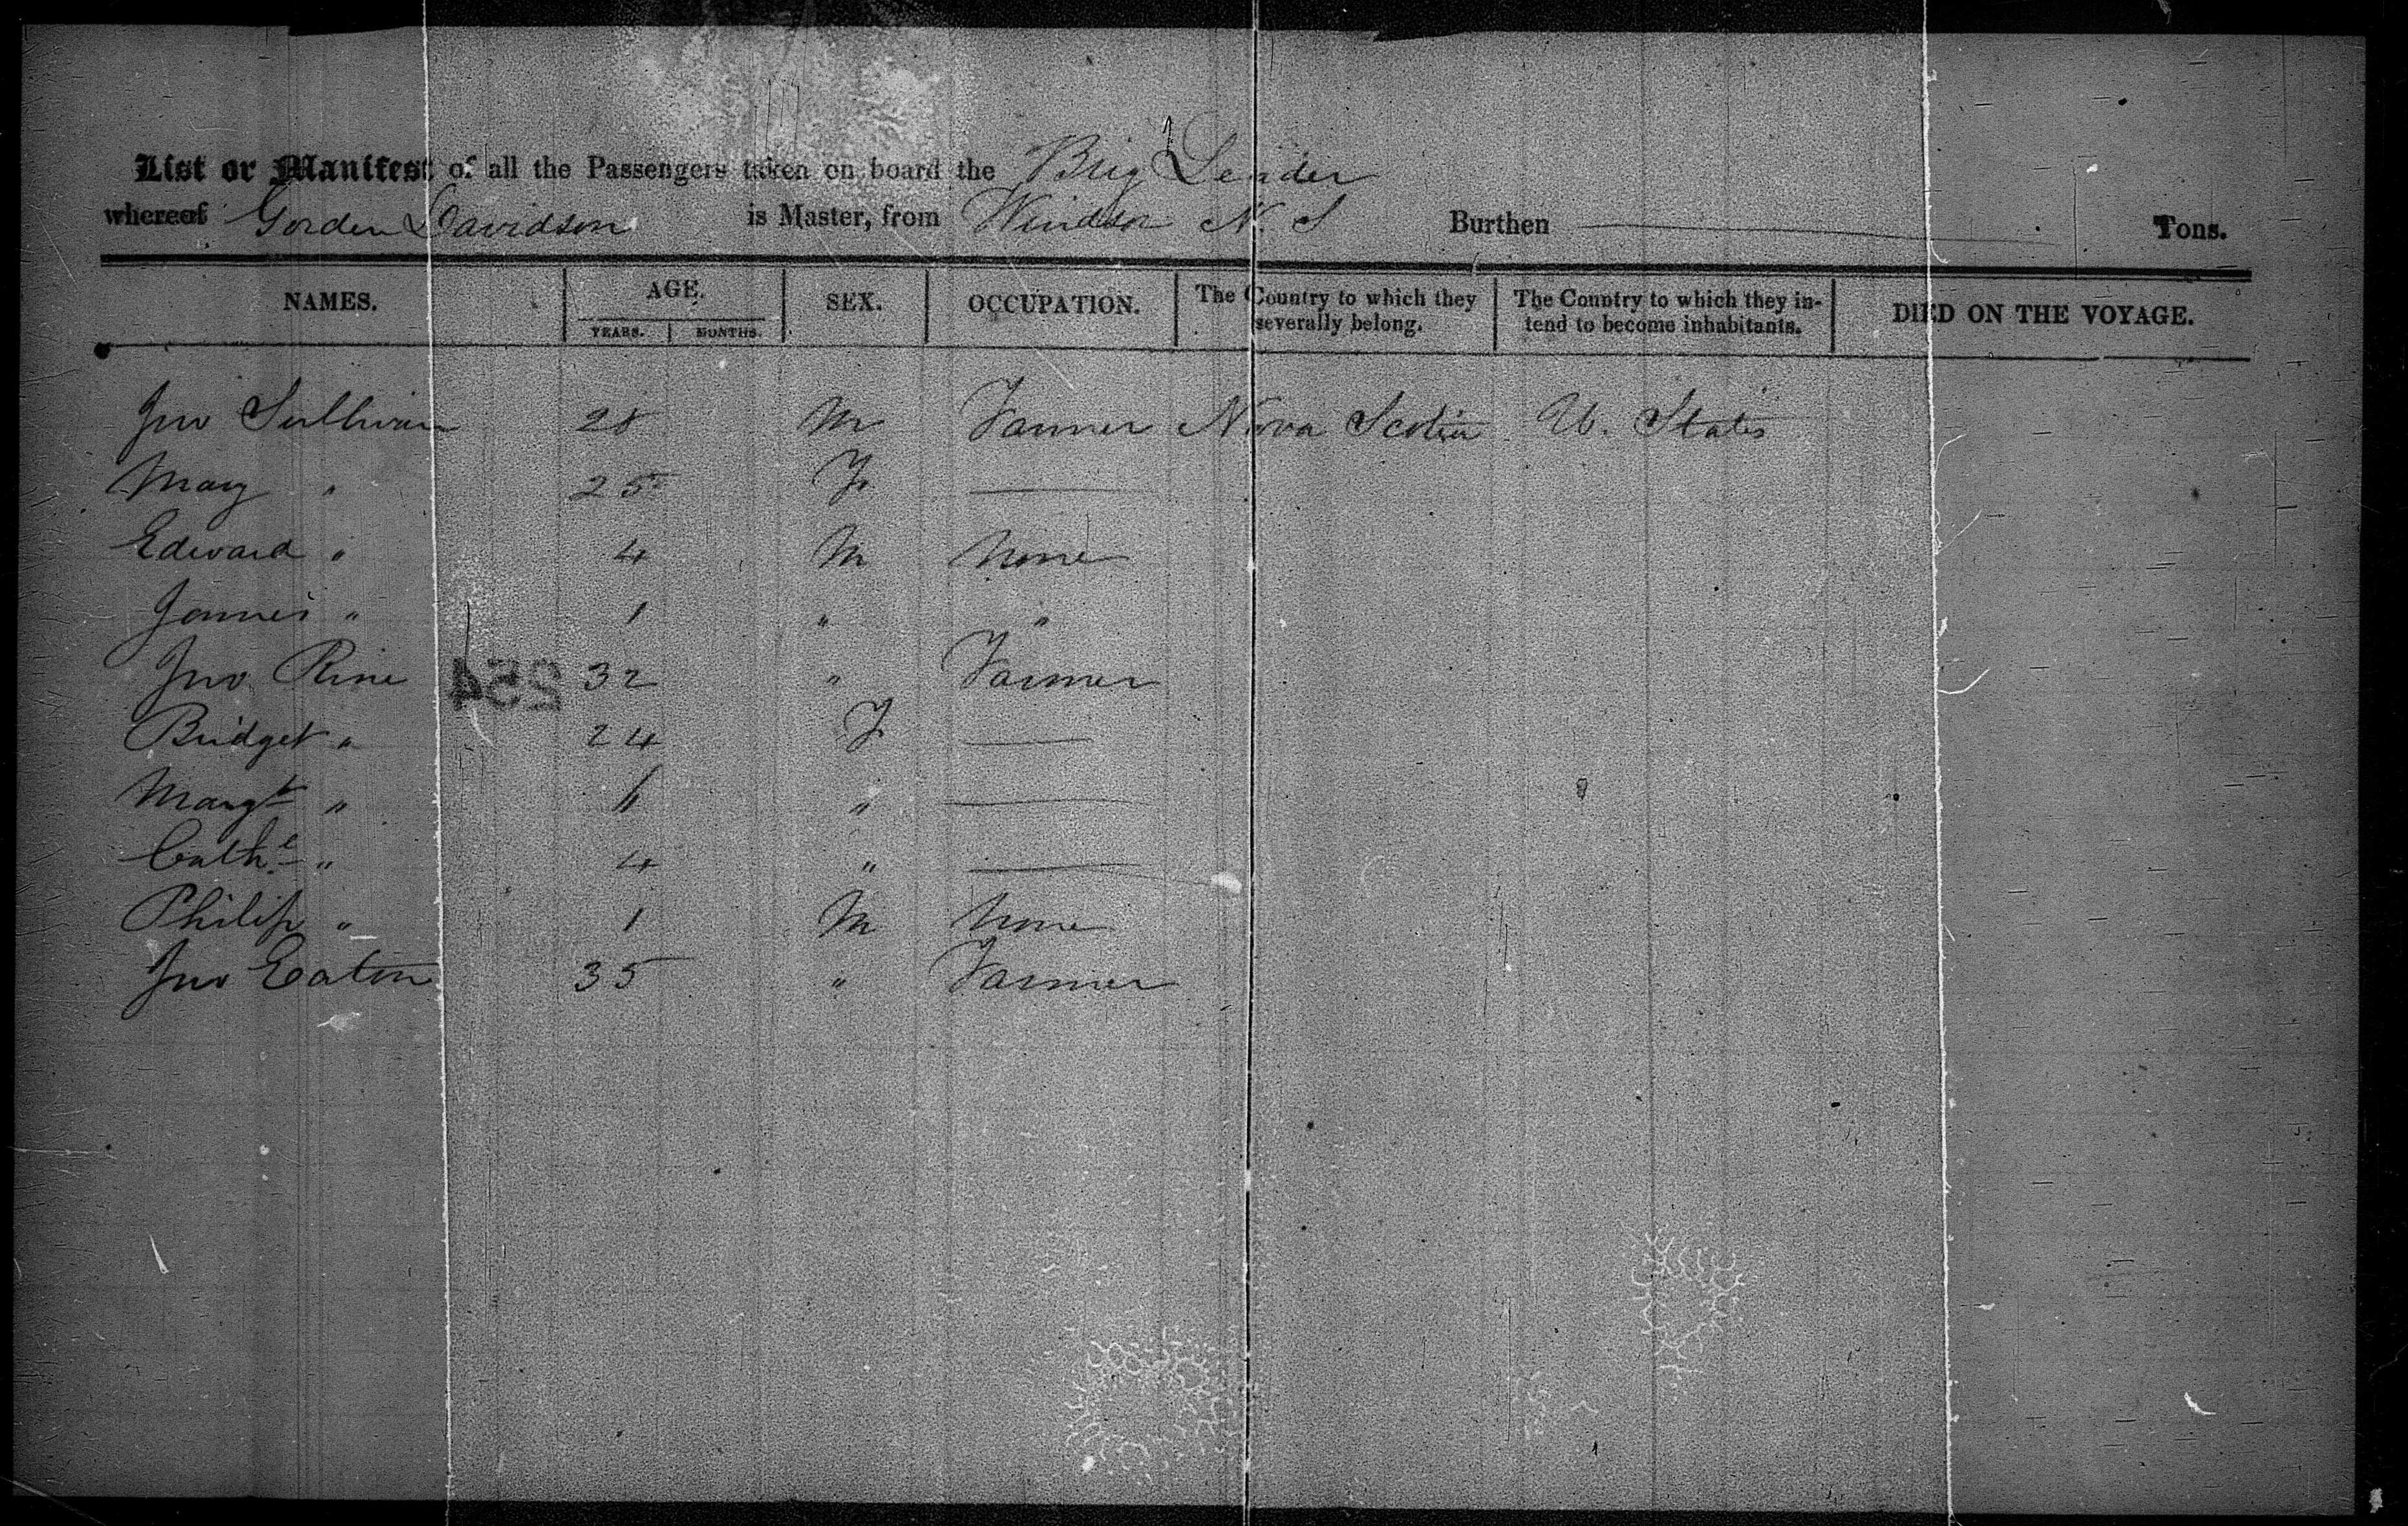 List or Manifest of all the Passengers taken on board the Brig Leader
whereof Gorden Davidson is Master, from Windsor N. S Burthen Tons.
NAMES. AGE. SEX. OCCUPATION. The Country to which they severally belong. The Country to which they in-tend to become inhabitants. DIED ON THE VOYAGE.
YEARS. MONTHS.
Jno Sullivan 28 M Farmer Nova Scotia U. States
Mary " 25 F
Edward " 4 M None
James " 1 " "
Jno Rine 32 " Farmer
254
Bridget " 24 F
Margt " 6 "
Cathe " 4 "
Philip " 1 M None
Jno Eaton 35 " Farmer